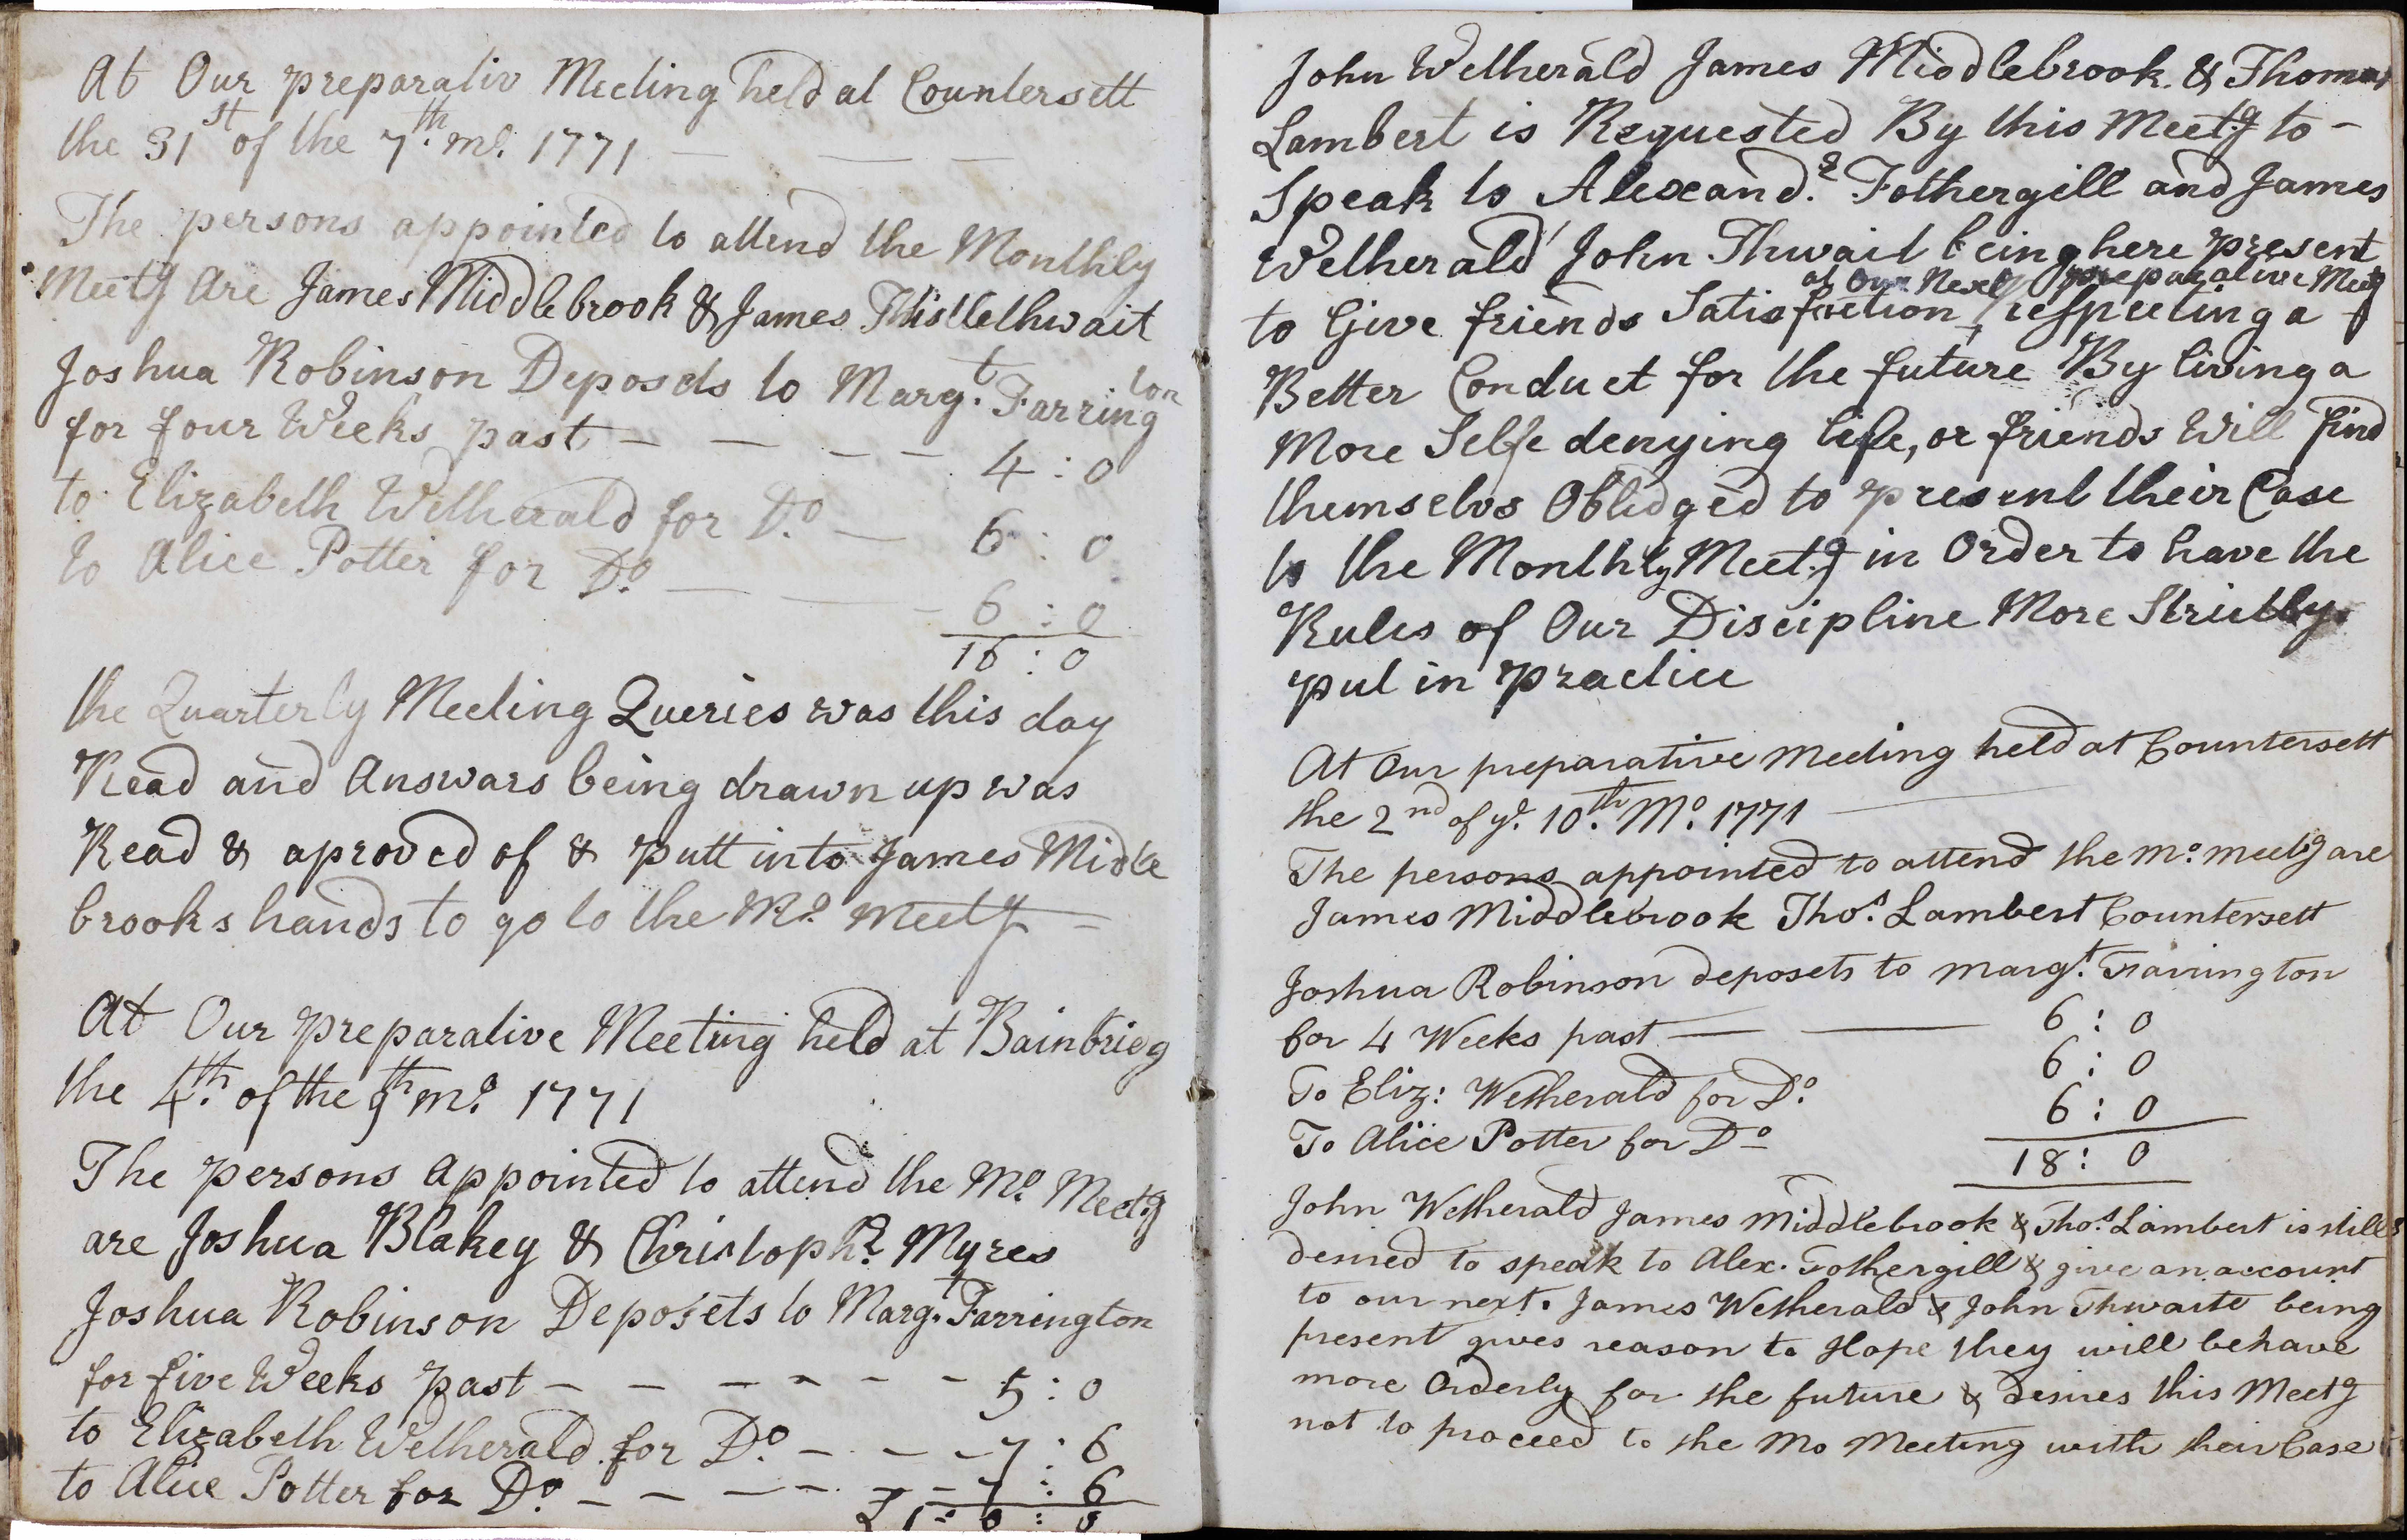 At Our preparativ Meeting held at Countersett
the 31st of the 7th. mo. 1771
The persons appointed to attend the Monthly
Meetg Are James Middlebrook & James Thistlethwait
Joshua Robinson Deposets to Margt. Farrington
for four Weeks past - - - - 4 : 0
to Elizabeth Wetherald for Do. - 6 : 0
to Alice Potter for Do. - - - 6 : 0
16 : 0
the Quarterly Meeting Queries was this day
Read and Answars being drawn up was
Read & aproved of & putt into James Midle
brooks hands to go to the Mo. Meetg -
At Our Preparative Meeting held at Bainbridg
the 4th. of the 9th mo. 1771
The persons Appointed to attend the Mo. Meetg
are Joshua Blakey & Christophr. Myres
Joshua Robinson Deposets to Margt. Farrington
for five Weeks past - - - - - - - 5 : 0
to Elizabeth Wetherald for Do. - - - 7 : 6
to Alice Potter for Do. - - - - - - 7 : 6
£ 1 : 0 : 0
John Wetherald James Middlebrook & Thomas
Lambert is Requested By this Meetg to -
Speak to Alexandr. Fothergill and James
Wetherald John Thwait being here present
at Our Next preparative Meetg
to Give friends Satisfaction respecting a
Better Conduct for the future By living a
More Selfe denying life, or friends Will find
themselvs Oblidged to present their Case
to the Monthly Meetg in Order to have the
Rules of Our Discipline More Strictly
put in practice
At Our preparative Meeting held at Countersett
the 2nd of ye. 10th. Mo. 1771
The persons appointed to attend the Mo. meetg are
James Middlebrook Thos. Lambert Countersett
Joshua Robinson deposets to Margt. Farrington
for 4 Weeks past - - 6 : 0
To Eliz: Wetherald for Do. 6 : 0
To Alice Potter for Do 6 : 0
18 : 0
John Wetherald James Middlebrook & Thos. Lambert is still
desired to speak to Alex. Fothergill & give an account
to our next. James Wetherald & John Thwaite being
present gives reason to Hope they will behave
more Orderly for the future & desires this Meetg
not to proceed to the Mo Meeting with their Case